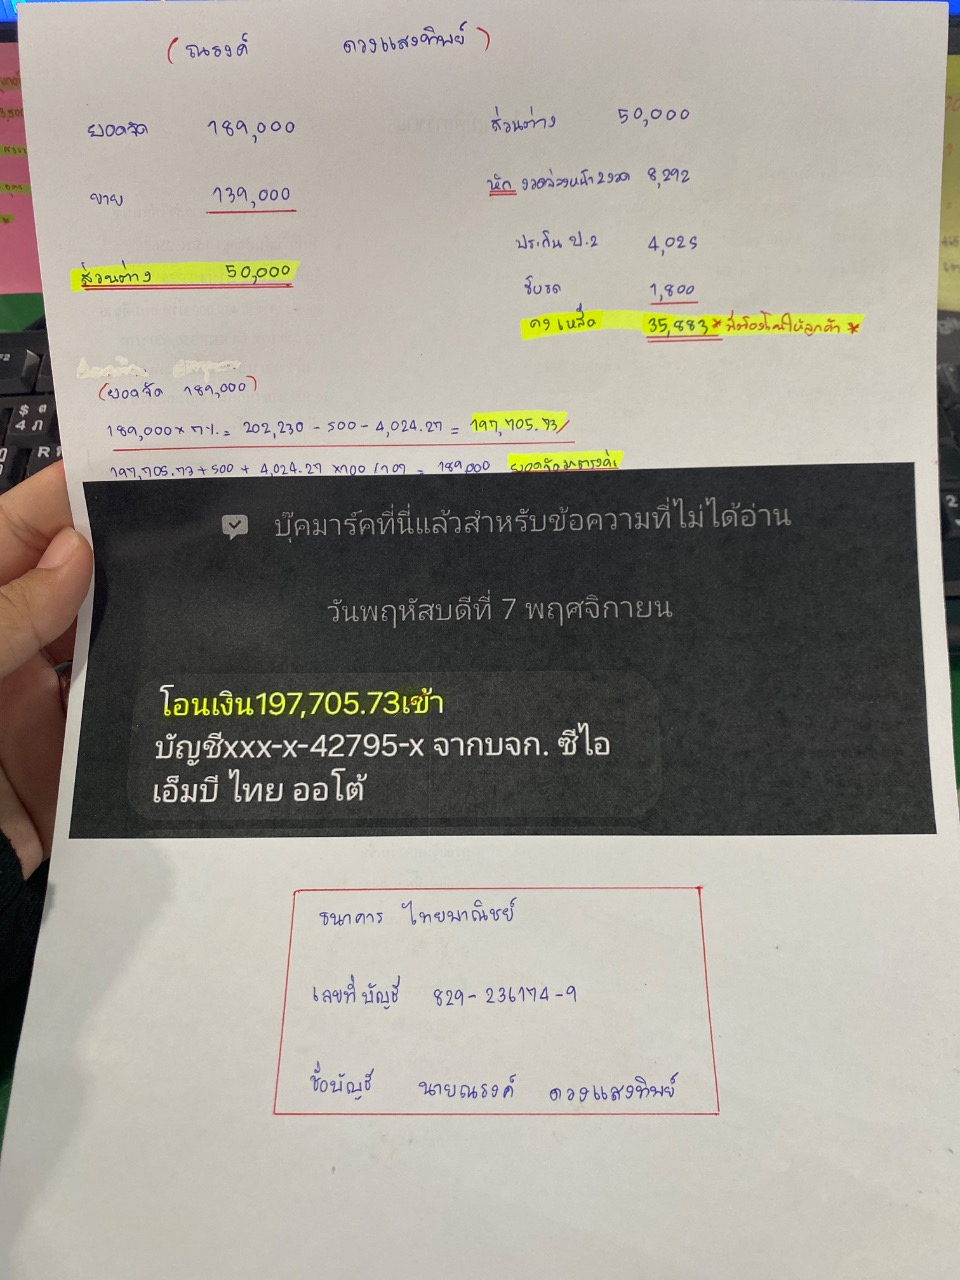 (ณรงค์ ดวงแสงทิพย์)
ยอดจัด 189,000
ขาย 139,000
ส่วนต่าง 50,000
ส่วนต่าง 50,000
หัก งวดล่วงหน้า 2 งวด 8,292
ประกัน ป.2 4,025
ขับรถ 1,800
คงเหลือ 35,883 * ที่ต้องโอนให้ลูกค้า *
(ยอดจัด 189,000)
189,000 × 7% = 202,230 - 500 - 4,024.27 = 197,705.73/
197,705.73 + 500 + 4,024.27 ×100 /107 = 189,000 ยอดจัด
บุ๊คมาร์คที่นี่แล้วสำหรับข้อความที่ไม่ได้อ่าน
วันพฤหัสบดีที่ 7 พฤศจิกายน
โอนเงิน197,705.73เข้า
บัญชีxxx-x-42795-x จากบจก. ซีไอ
เอ็มบี ไทย ออโต้
ธนาคาร ไทยพาณิชย์
เลขที่บัญชี 829-236174-9
ชื่อบัญชี นายณรงค์ ดวงแสงทิพย์